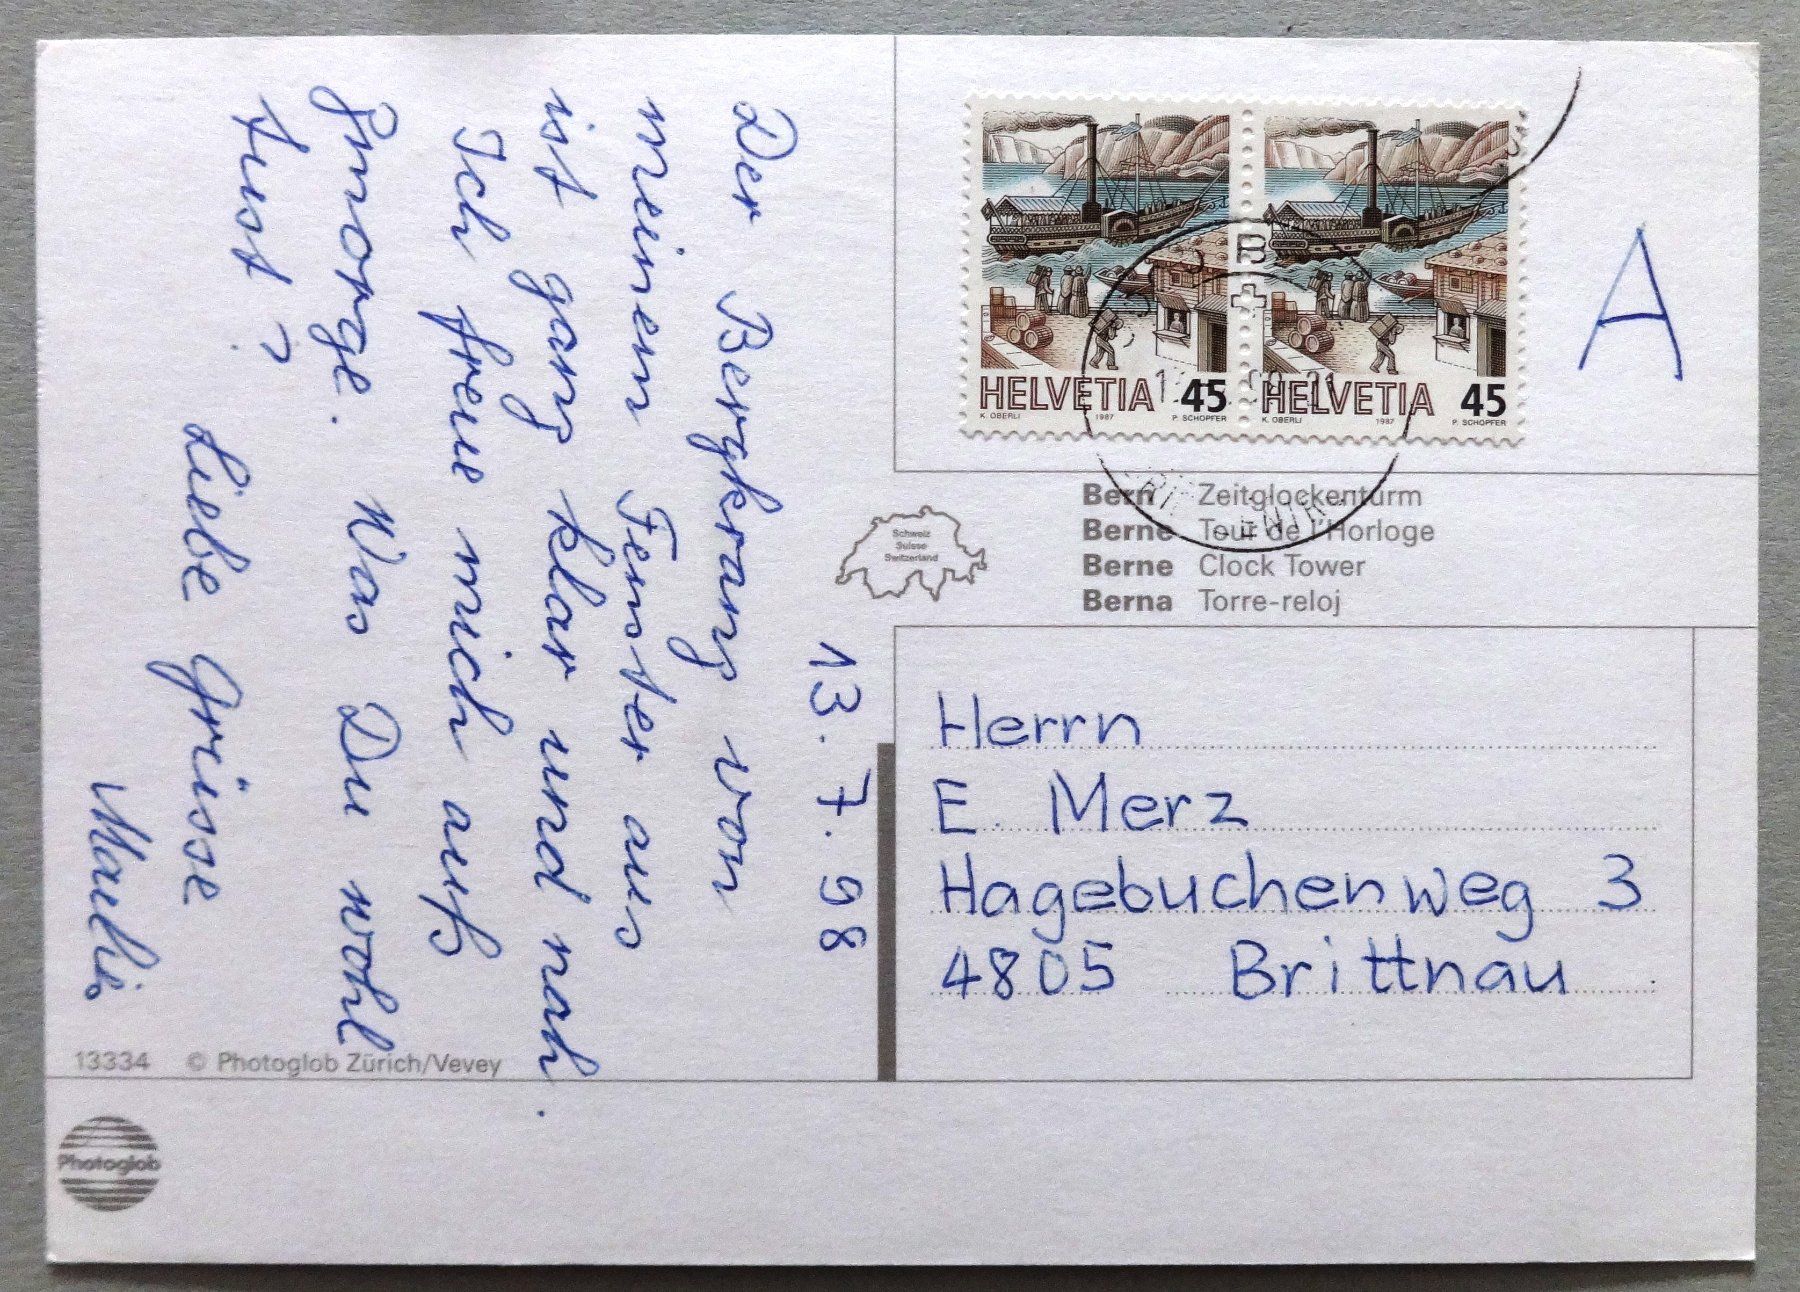 13. 7. 98
Der Bergkranz von
meinem Fenster aus
ist ganz klar und nah.
Ich freue mich aufs
Zmorge. Was Du wohl
tust?
Liebe Grüsse
HELVETIA 45
K. OBERLI 1987 P. SCHOPFER
HELVETIA 45
K. OBERLI 1987 P. SCHOPFER
A
Bern Zeitglockenturm
Berne Tour de l'Horloge
Berne Clock Tower
Berna Torre-reloj
Schweiz
Suisse
Switzerland
Herrn
E. Merz
Hagebuchenweg 3
4805 Brittnau
13334 © Photoglob Zürich/Vevey
Photoglob